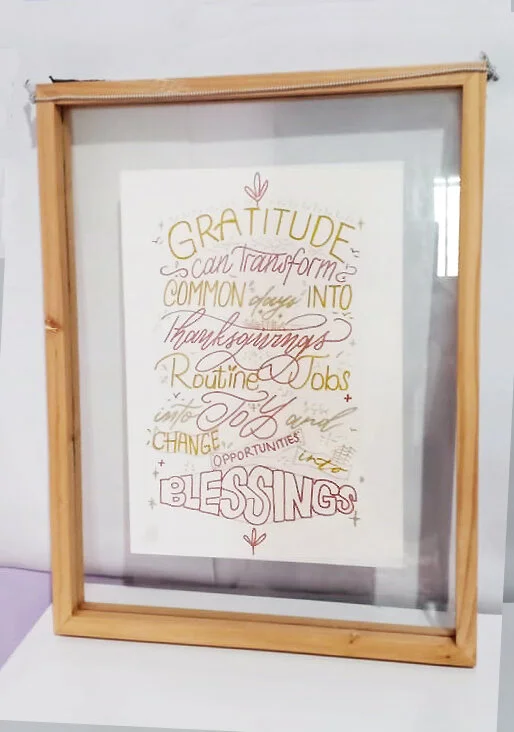 GRATITUDE
can Transform
COMMON days INTO
Thanksgivings
Routine Jobs
into JOY and
CHANGE OPPORTUNITIES into
BLESSINGS